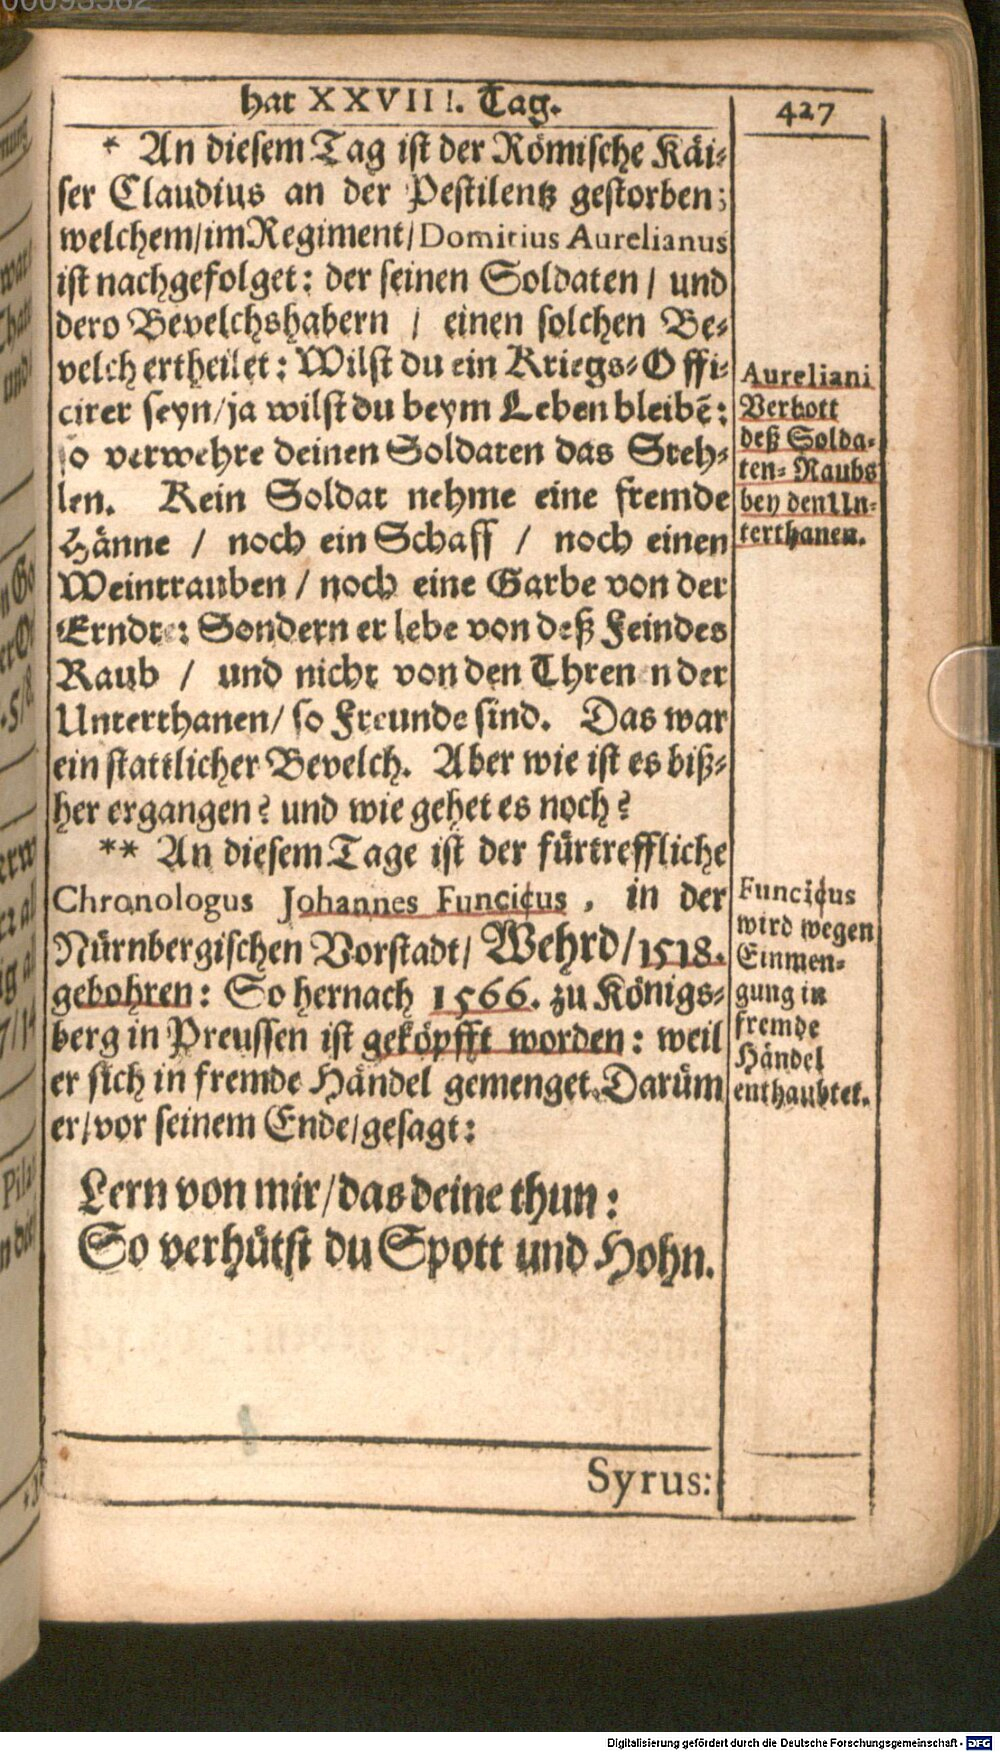 00093582
hat XXVIII. Tag.
427
* An diesem Tag ist der Römische Käi-
ser Claudius an der Pestilentz gestorben;
welchem/im Regiment/Domitius Aurelianus
ist nachgefolget: der seinen Soldaten / und
dero Bevelchshabern / einen solchen Be-
velch ertheilet: Wilst du ein Kriegs-Offi-
cirer seyn/ja wilst du beym Leben bleibē:
so verwehre deinen Soldaten das Steh-
len. Kein Soldat nehme eine fremde
Hänne / noch ein Schaff / noch einen
Weintrauben / noch eine Garbe von der
Erndte: Sondern er lebe von deß Feindes
Raub / und nicht von den Threnen der
Unterthanen/ so Freunde sind. Das war
ein stattlicher Bevelch. Aber wie ist es biß-
her ergangen? und wie gehet es noch?
** An diesem Tage ist der fürtreffliche
Chronologus Johannes Funcicus, in der
Nürnbergischen Vorstadt/ Wehrd/1518.
gebohren: So hernach 1566. zu Königs-
berg in Preussen ist geköpfft worden: weil
er sich in fremde Händel gemenget. Darüm
er/vor seinem Ende/gesagt:
Lern von mir/das deine thun:
So verhütst du Spott und Hohn.
Syrus:
Aureliani
Verbott
deß Solda-
ten-Raubs
bey den Un-
terthanen.
Funcicus
wird wegen
Einmen-
gung in
fremde
Händel
enthaubtet.
Digitalisierung gefördert durch die Deutsche Forschungsgemeinschaft - DFG